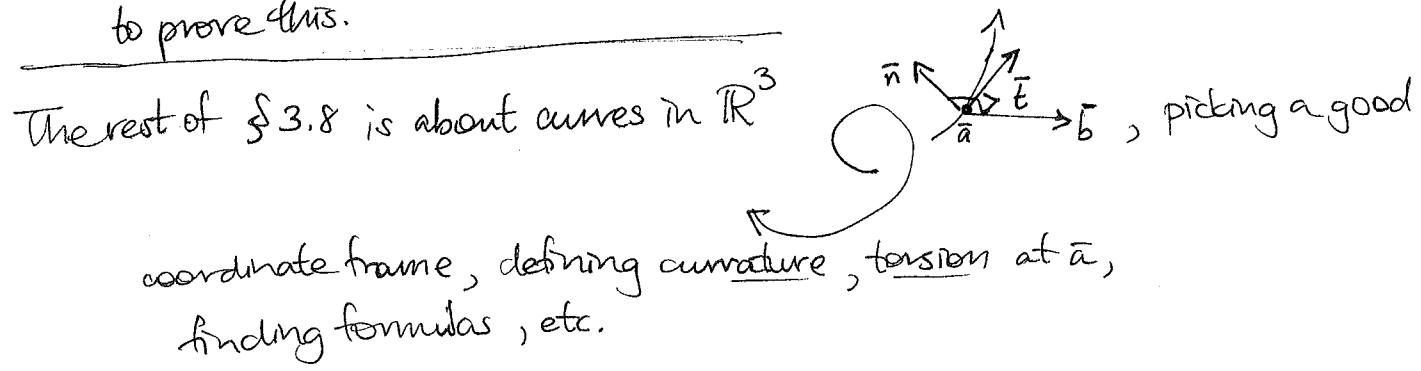 to prove this.
The rest of §3.8 is about curves in ℝ³ n̄ t̄ ā b̄ , picking a good
coordinate frame, defining curvature, torsion at ā,
finding formulas, etc.